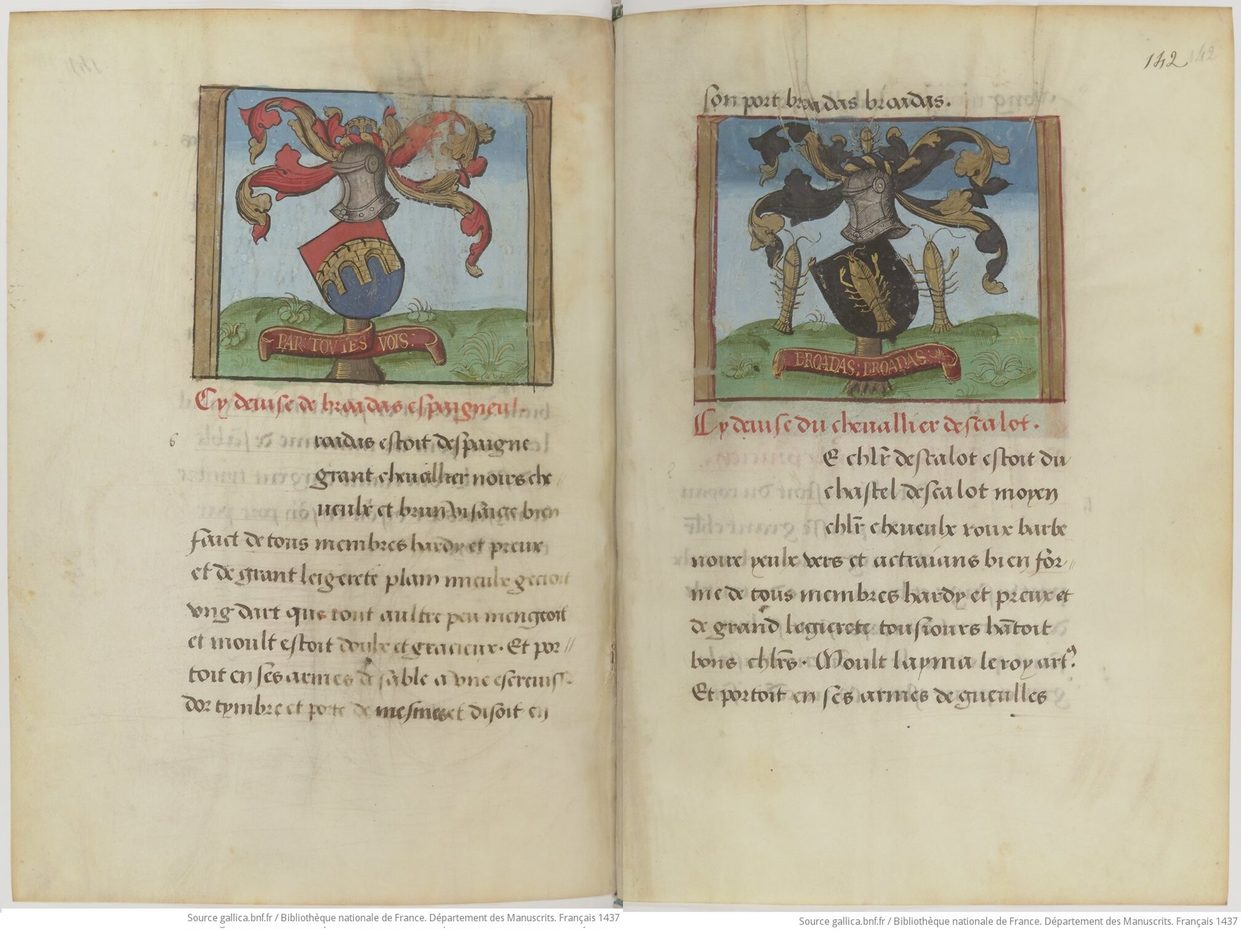 PAR TOVTES VOIS
Cy deuise de broadas espaigneul.
6
roadas estoit despaigne
grant cheuallier noirs che
ueulx et brun visaige bien
faict de tous membres hardy et preux
et de grant leigerete plain mieulx gectoit
vng dart que tout aultre peu mengeoit
et moult estoit doulx et gracieux. Et por//
toit en ses armes de sable a vne escreuiss.
dor tymbre et porte de mesmes et disoit en
142 142
son port broadas broadas.
BROADAS: BROADAS
Cy deuise du cheuallier descalot.
E chlr descalot estoit du
chastel descalot moyen
chlr cheueulx roux barbe
noire yeulx vers et actraians bien for//
me de tous membres hardy et preux et
de grand legierete tousiours hatoit
bons chlrs. Moult layma le roy art
Et portoit en ses armes de gueulles
Source gallica.bnf.fr / Bibliothèque nationale de France. Département des Manuscrits. Français 1437
Source gallica.bnf.fr / Bibliothèque nationale de France. Département des Manuscrits. Français 1437